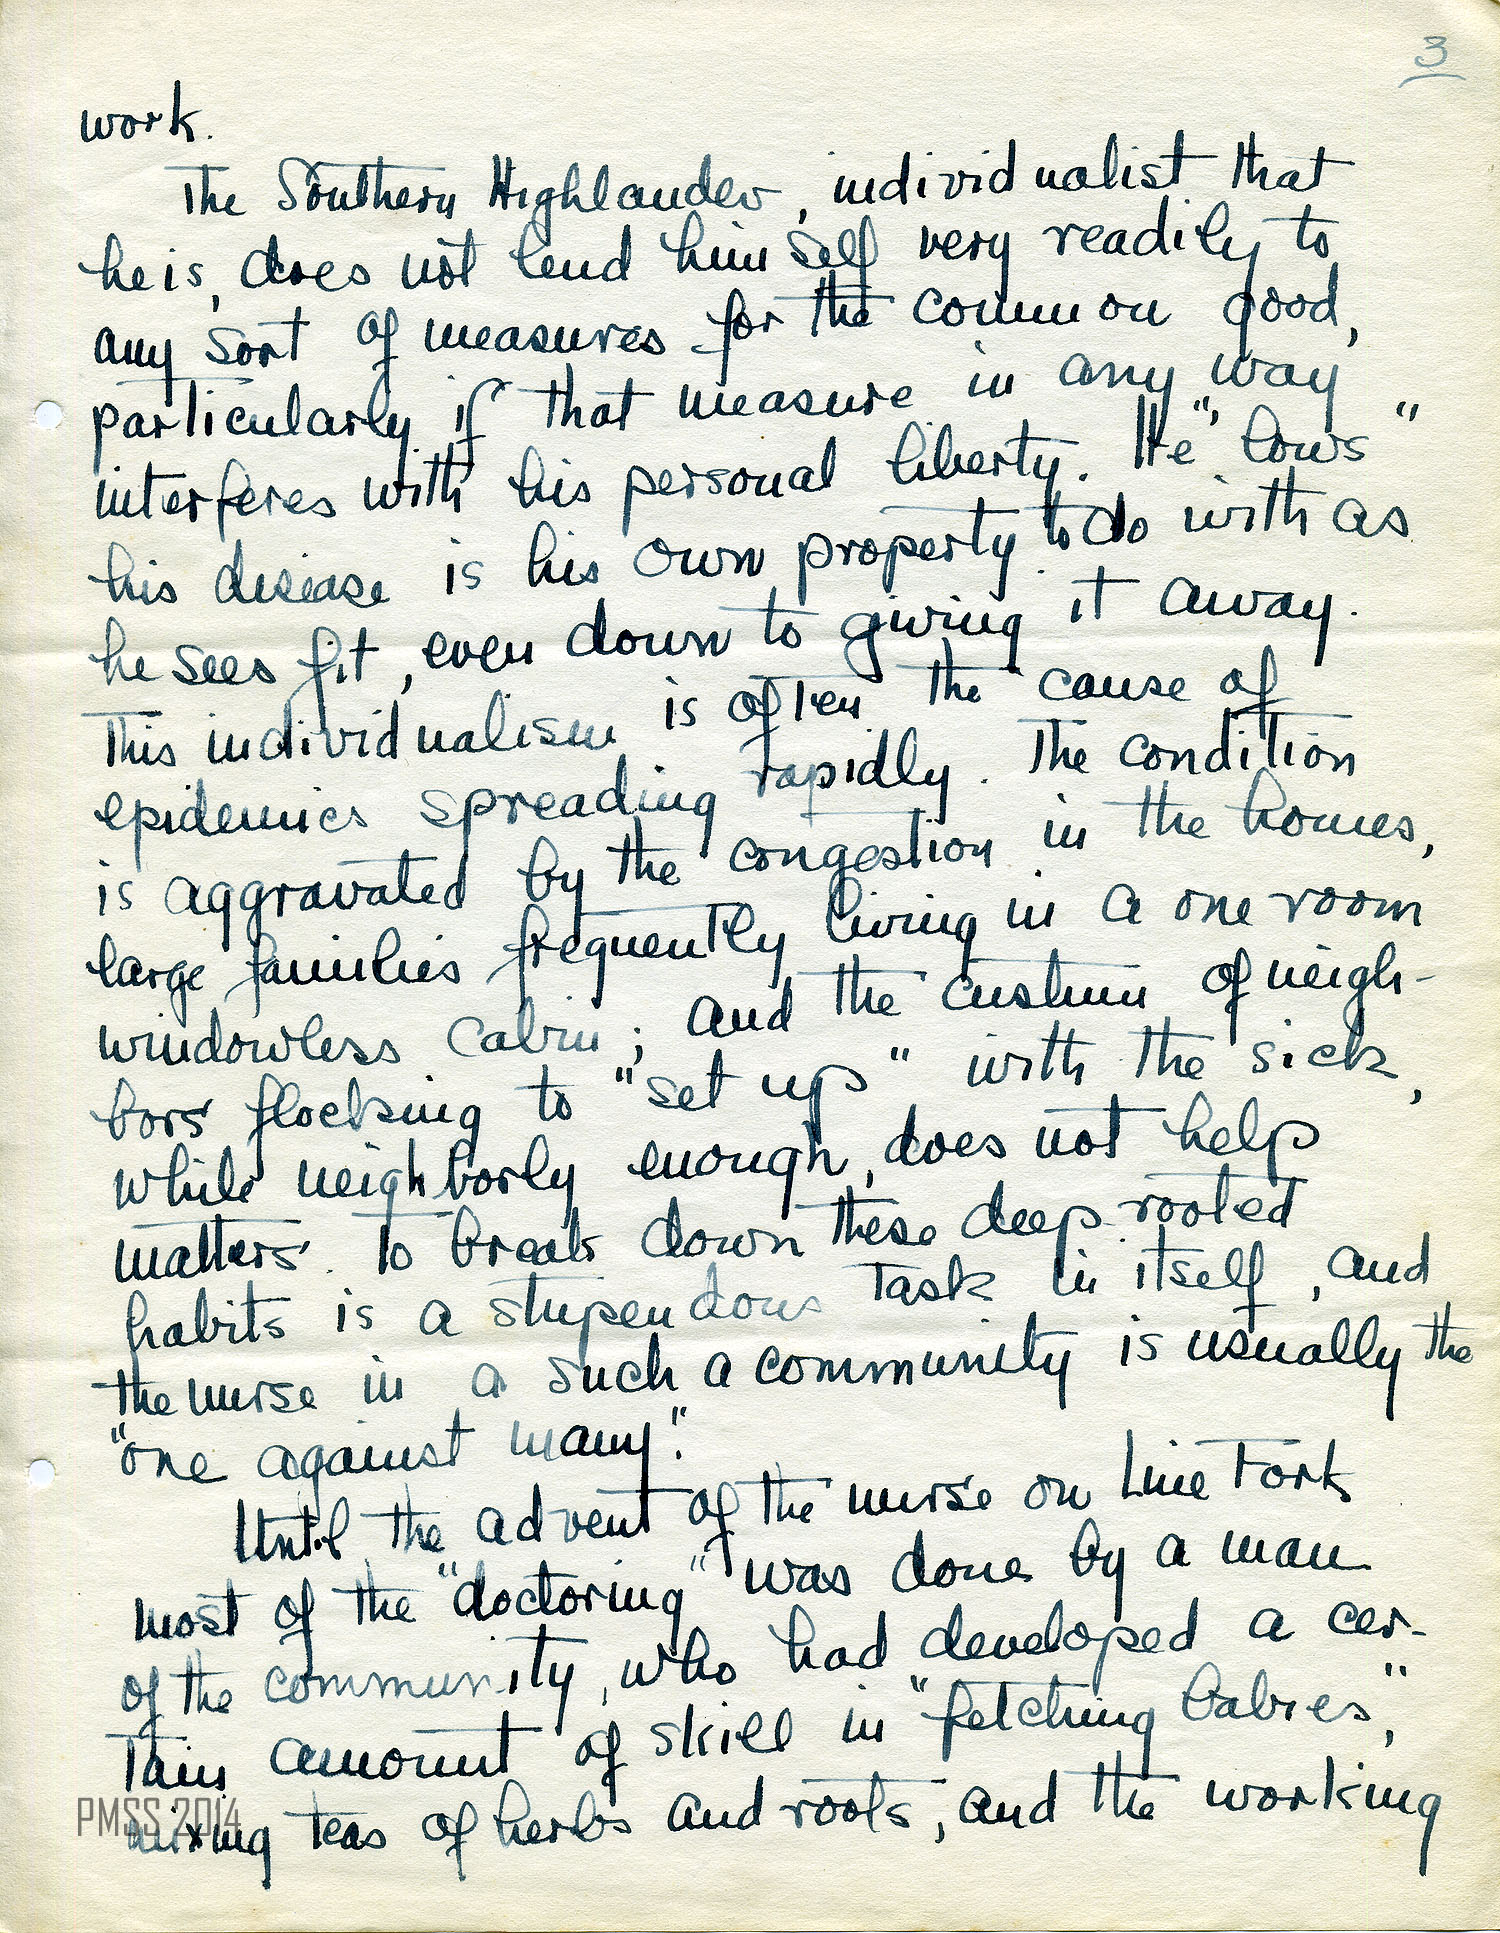 3
work.
The Southern Highlander, individualist that
he is, does not lend himself very readily to
any sort of measures for the common good,
particularly if that measure in any way
interferes with his personal liberty. He "'lows"
his disease is his own property to do with as
he sees fit, even down to giving it away.
This individualism is often the cause of
epidemics spreading rapidly. The condition
is aggravated by the congestion in the homes,
large families frequently living in a one room
windowless cabin; and the custom of neigh-
bors flocking to "set up" with the sick,
while neighborly enough, does not help
matters. To break down these deep rooted
habits is a stupendous task in itself, and
the nurse in a such a community is usually the
"one against many".
Until the advent of the nurse on Line Fork
most of the "doctoring" was done by a man
of the community, who had developed a cer-
tain amount of skill in "fetching babies",
mixing teas of herbs and roots, and the working
PMSS 2014